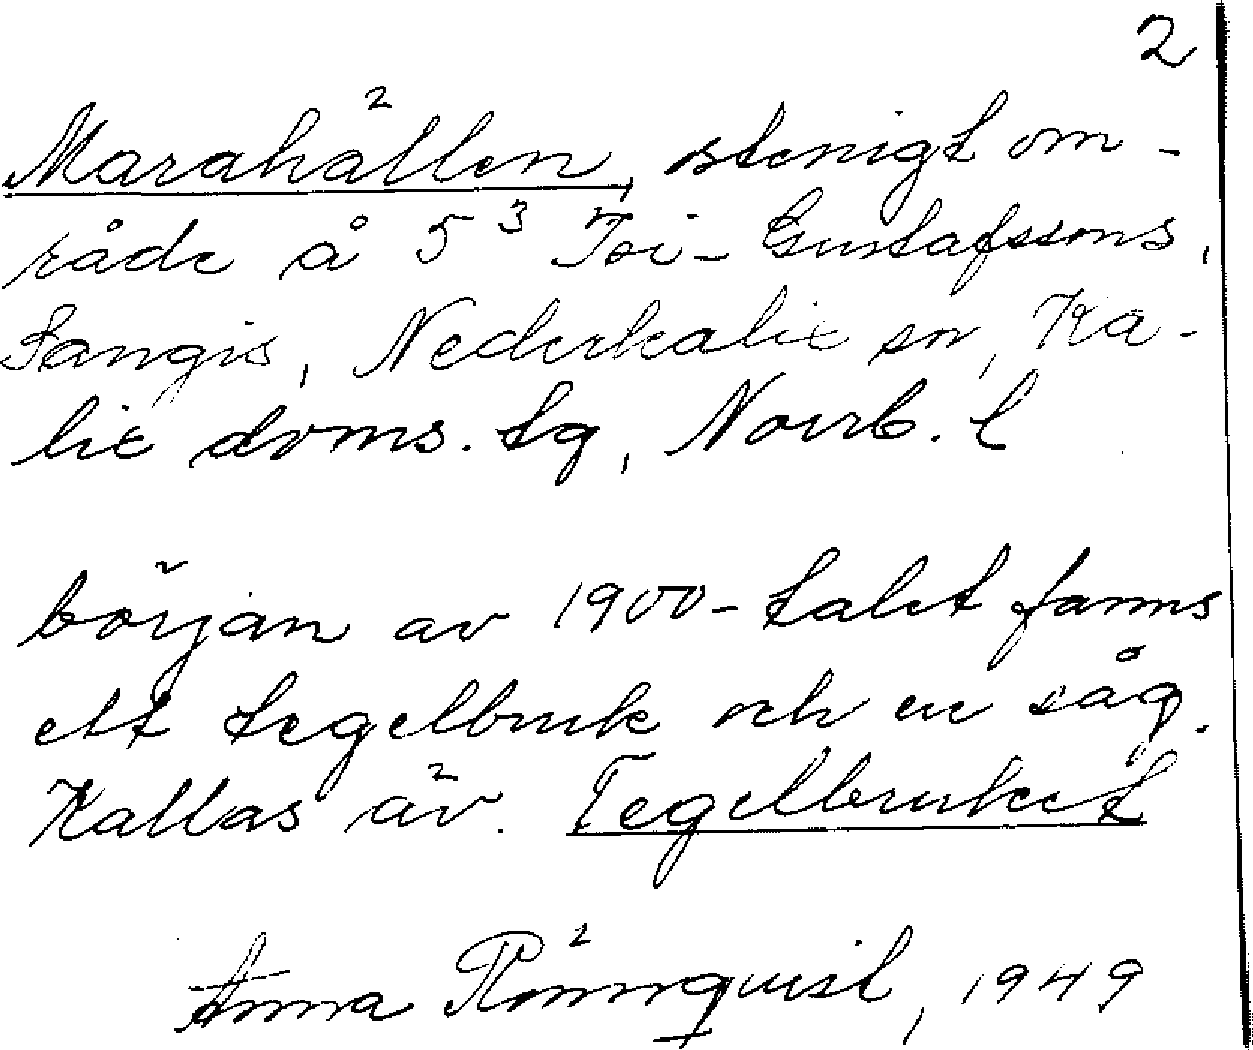 2
Marahällen, stenigt om-
råde å 5³ Toi-Gustafssons,
Sangis, Nederkalix sn, Ka-
lix doms. tg, Norrb. l
början av 1900-talet fanns
ett tegelbruk och en såg.
Kallas äv. Tegelbruket
Anna Rönnquist, 1949